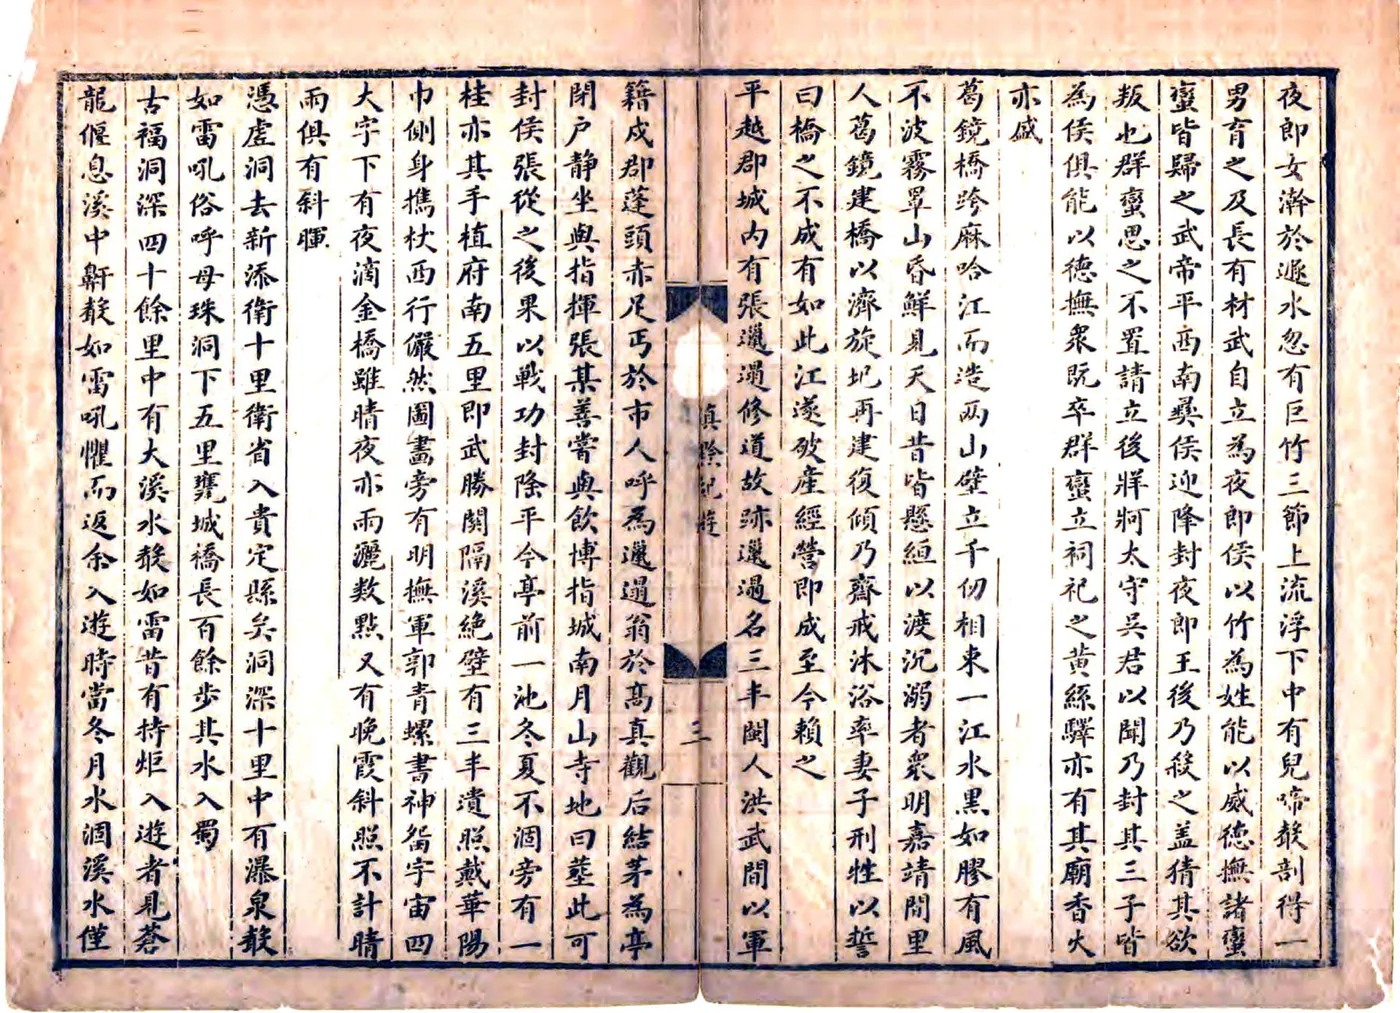 夜郎女澣於遯水忽有巨竹三節上流浮下中有兒啼聲剖得一
男育之及長有材武自立為夜郎侯以竹為姓能以威德撫諸蠻
蠻皆歸之武帝平西南彝侯迎降封夜郎王後乃殺之盖猜其欲
叛也群蠻思之不置請立後牂牁太守吳君以聞乃封其三子皆
為侯俱能以德撫衆既卒群蠻立祠祀之黄絲驛亦有其廟香火
亦盛
葛鏡橋跨麻哈江而造兩山壁立千仞相束一江水黒如膠有風
不波霧罩山昏鮮見天日昔皆懸絙以渡沉溺者衆明嘉靖間里
人葛鏡建橋以濟旋圮再建復傾乃齋戒沐浴率妻子刑牲以誓
曰橋之不成有如此江遂破産經營即成至今頼之
平越郡城内有張邋遢修道故跡邋遢名三丰閩人洪武間以軍
滇黔紀遊
三
籍戍郡蓬頭赤足丐於市人呼為邋遢翁於髙真觀后結茅為亭
閉户静坐與指揮張某善嘗與飲博指城南月山寺地曰塟此可
封侯張從之後果以戰功封隆平今亭前一池冬夏不涸旁有一
桂亦其手植府南五里即武勝關隔溪絶壁有三丰遺照戴華陽
巾側身擕杖西行儼然圖畫旁有明撫軍郭青螺書神留宇宙四
大字下有夜滴金橋雖晴夜亦雨灑数點又有晚霞斜照不計晴
雨俱有斜暉
憑虛洞去新添衛十里衛省入貴定縣矣洞深十里中有瀑泉聲
如雷吼俗呼母珠洞下五里甕城橋長百餘步其水入蜀
古福洞深四十餘里中有大溪水聲如雷昔有持炬入遊者見蒼
龍偃息溪中鼾聲如雷吼懼而返余入遊時當冬月水涸溪水僅